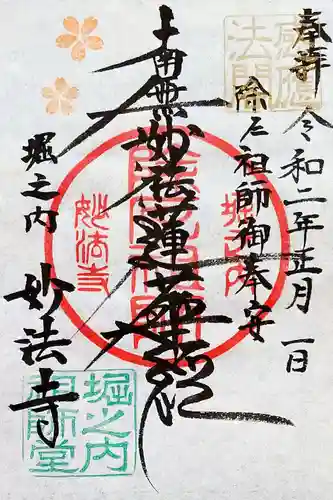 奉拝
令和二年正月一日
除厄祖師御奉安
南無妙法蓮華経
堀之内
妙法寺
堀之内
妙法寺
堀之内
祖師堂